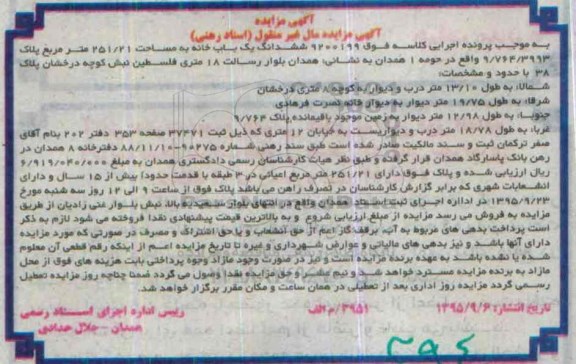 آگهی مزایده
آگهی مزایده مال غیر منقول (اسناد رهنی)
به موجب پرونده اجرایی کلاسه فوق ۹۲۰۰۱۹۹ ششدانگ یک باب خانه به مساحت ۲۵۱/۲۱ متر مربع پلاک
۹/۷۶۴/۳۹۹۳ واقع در حومه ۱ همدان به نشانی: همدان بلوار رسالت ۱۸ متری فلسطین نبش کوچه درخشان پلاک
۳۸ با حدود و مشخصات:
شمالا: به طول ۱۳/۱۰ متر درب و دیوار به کوچه ۸ متری درخشان
شرقا: به طول ۱۹/۷۵ متر دیوار به دیوار خانه نصرت فرهادی
جنوبا: به طول ۱۲/۹۸ متر دیوار به زمین موجود باقیمانده پلاک ۹/۷۶۴
غربا: به طول ۱۸/۷۸ متر درب و دیواریست به خیابان ۱۲ متری که ذیل ثبت ۳۷۴۷۱ صفحه ۳۵۳ دفتر ۲۰۲ بنام آقای
صفر ترکمان ثبت و سند مالکیت صادر شده است طبق سند رهنی شماره ۹۰۲۷۵-۸۸/۱۱/۱۰ دفترخانه ۸ همدان در
رهن بانک پاسارگاد همدان قرار گرفته و طبق نظر هیات کارشناسان رسمی دادگستری همدان به مبلغ ۶/۹۱۹/۰۴۰/۰۰۰
ریال ارزیابی شده و پلاک فوق دارای ۲۵۱/۲۱ متر مربع اعیانی در ۳ طبقه با قدمت حدودا بیش از ۱۵ سال و دارای
انشعابات شهری که برابر گزارش کارشناسان در تصرف راهن می باشد پلاک فوق از ساعت ۹ الی ۱۲ روز سه شنبه مورخ
۱۳۹۵/۹/۲۳ در اداره اجرای ثبت اسناد همدان واقع در انتهای بلوار سعیدیه بالا، نبش بلوار غنی زادیان از طریق
مزایده به فروش می رسد مزایده از مبلغ ارزیابی شروع و به بالاترین قیمت پیشنهادی نقدا فروخته می شود لازم به ذکر
است پرداخت بدهی های مربوط به آب، برق، گاز اعم از حق انشعاب و یا حق اشتراک و مصرف در صورتی که مورد مزایده
دارای آنها باشد و نیز بدهی های مالیاتی و عوارض شهرداری و غیره تا تاریخ مزایده اعم از اینکه رقم قطعی آن معلوم
شده یا نشده باشد به عهده برنده مزایده است و نیز در صورت وجود مازاد وجوه پرداختی بابت هزینه های فوق از محل
مازاد به برنده مزایده مسترد خواهد شد و نیم عشر و حق مزایده نقدا وصول می گردد ضمنا چنانچه روز مزایده تعطیل
رسمی گردد مزایده روز اداری بعد از تعطیلی در همان ساعت و مکان مقرر برگزار خواهد شد.
تاریخ انتشار: ۱۳۹۵/۹/۶
۳۹۵۱/م الف
رییس اداره اجرای اسناد رسمی
همدان - جلال حدادی